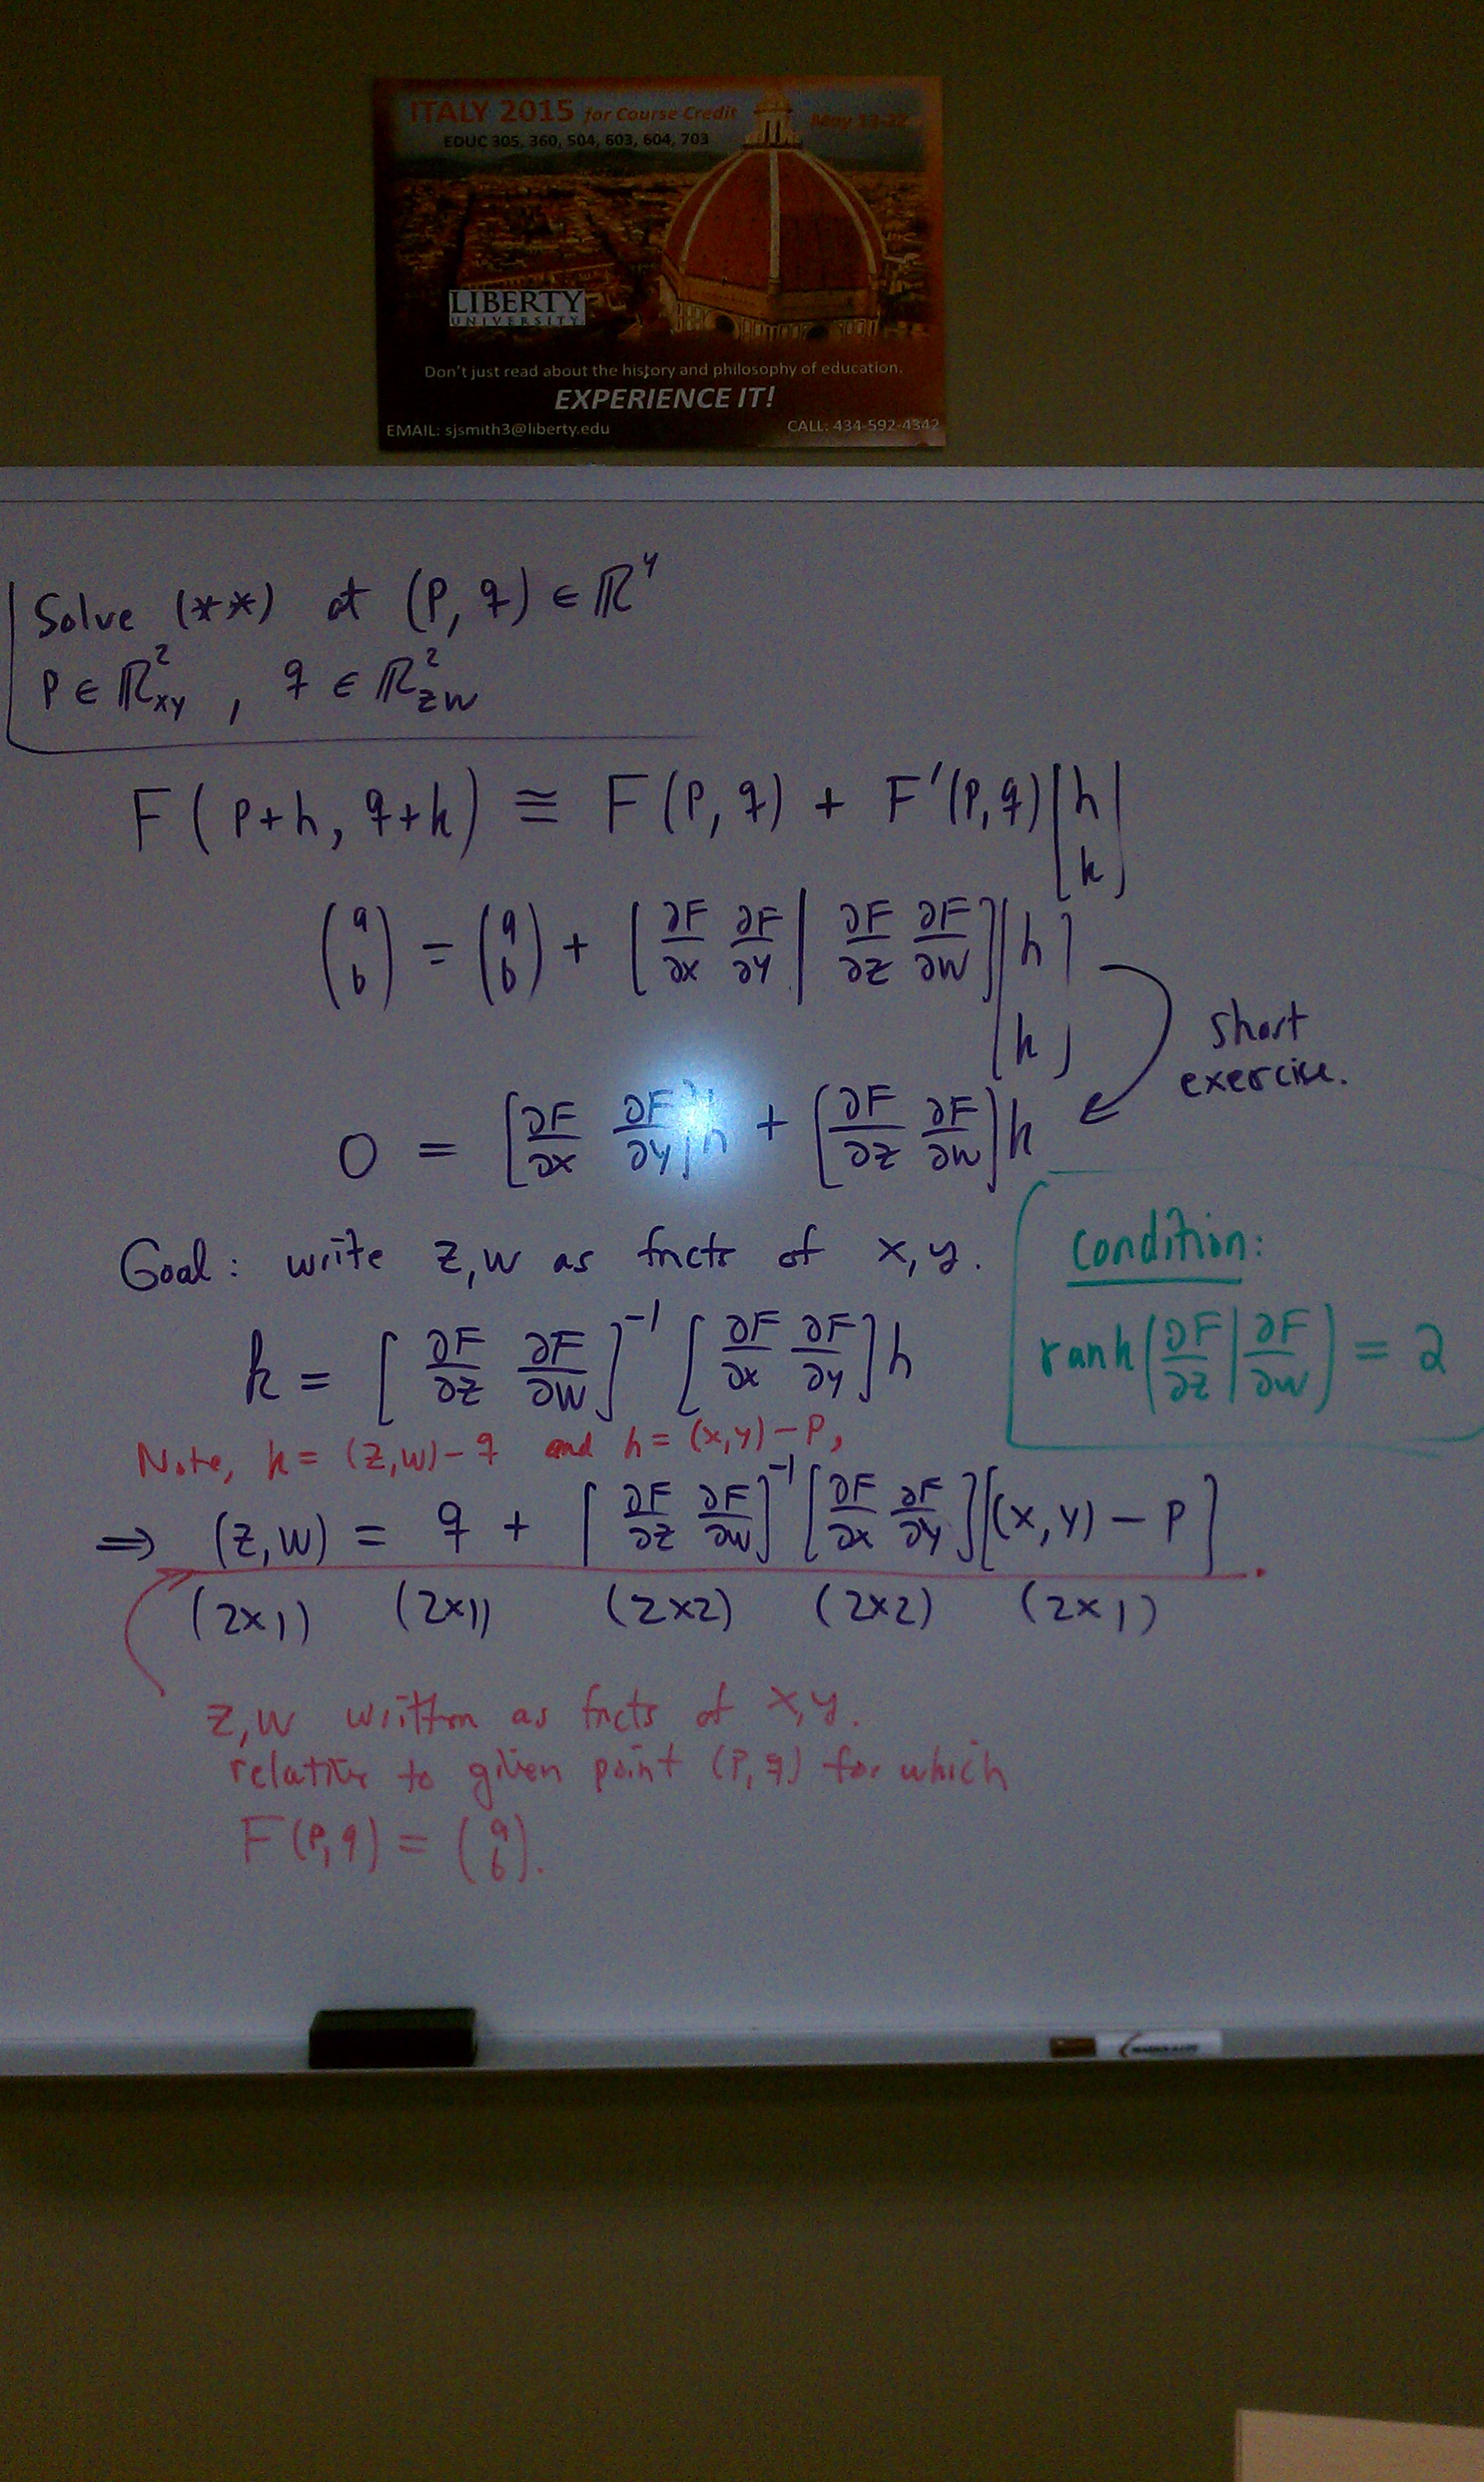 ITALY 2015 for Course Credit May 13-22
EDUC 305, 360, 504, 603, 604, 703
LIBERTY
UNIVERSITY
Don't just read about the history and philosophy of education.
EXPERIENCE IT!
EMAIL: sjsmith3@liberty.edu CALL: 434-592-4342
Solve (**) at (P, q) ∈ ℝ⁴
P ∈ ℝ²_xy , q ∈ ℝ²_zw
F(P+h, q+k) ≅ F(P, q) + F'(P,q)[h k]
(a b) = (a b) + [∂F/∂x ∂F/∂y | ∂F/∂z ∂F/∂w][h k]
short
exercise.
0 = [∂F/∂x ∂F/∂y]h + [∂F/∂z ∂F/∂w]k
Goal: write z,w as fncts of x,y.
condition:
rank(∂F/∂z | ∂F/∂w) = 2
k = [∂F/∂z ∂F/∂w]⁻¹ [∂F/∂x ∂F/∂y]h
Note, k = (z,w) - q and h = (x,y) - P,
⇒ (z,w) = q + [∂F/∂z ∂F/∂w]⁻¹ [∂F/∂x ∂F/∂y][(x,y) - P].
(2x1) (2x1) (2x2) (2x2) (2x1)
z,w written as fncts of x,y.
relative to given point (P,q) for which
F(P,q) = (a b).